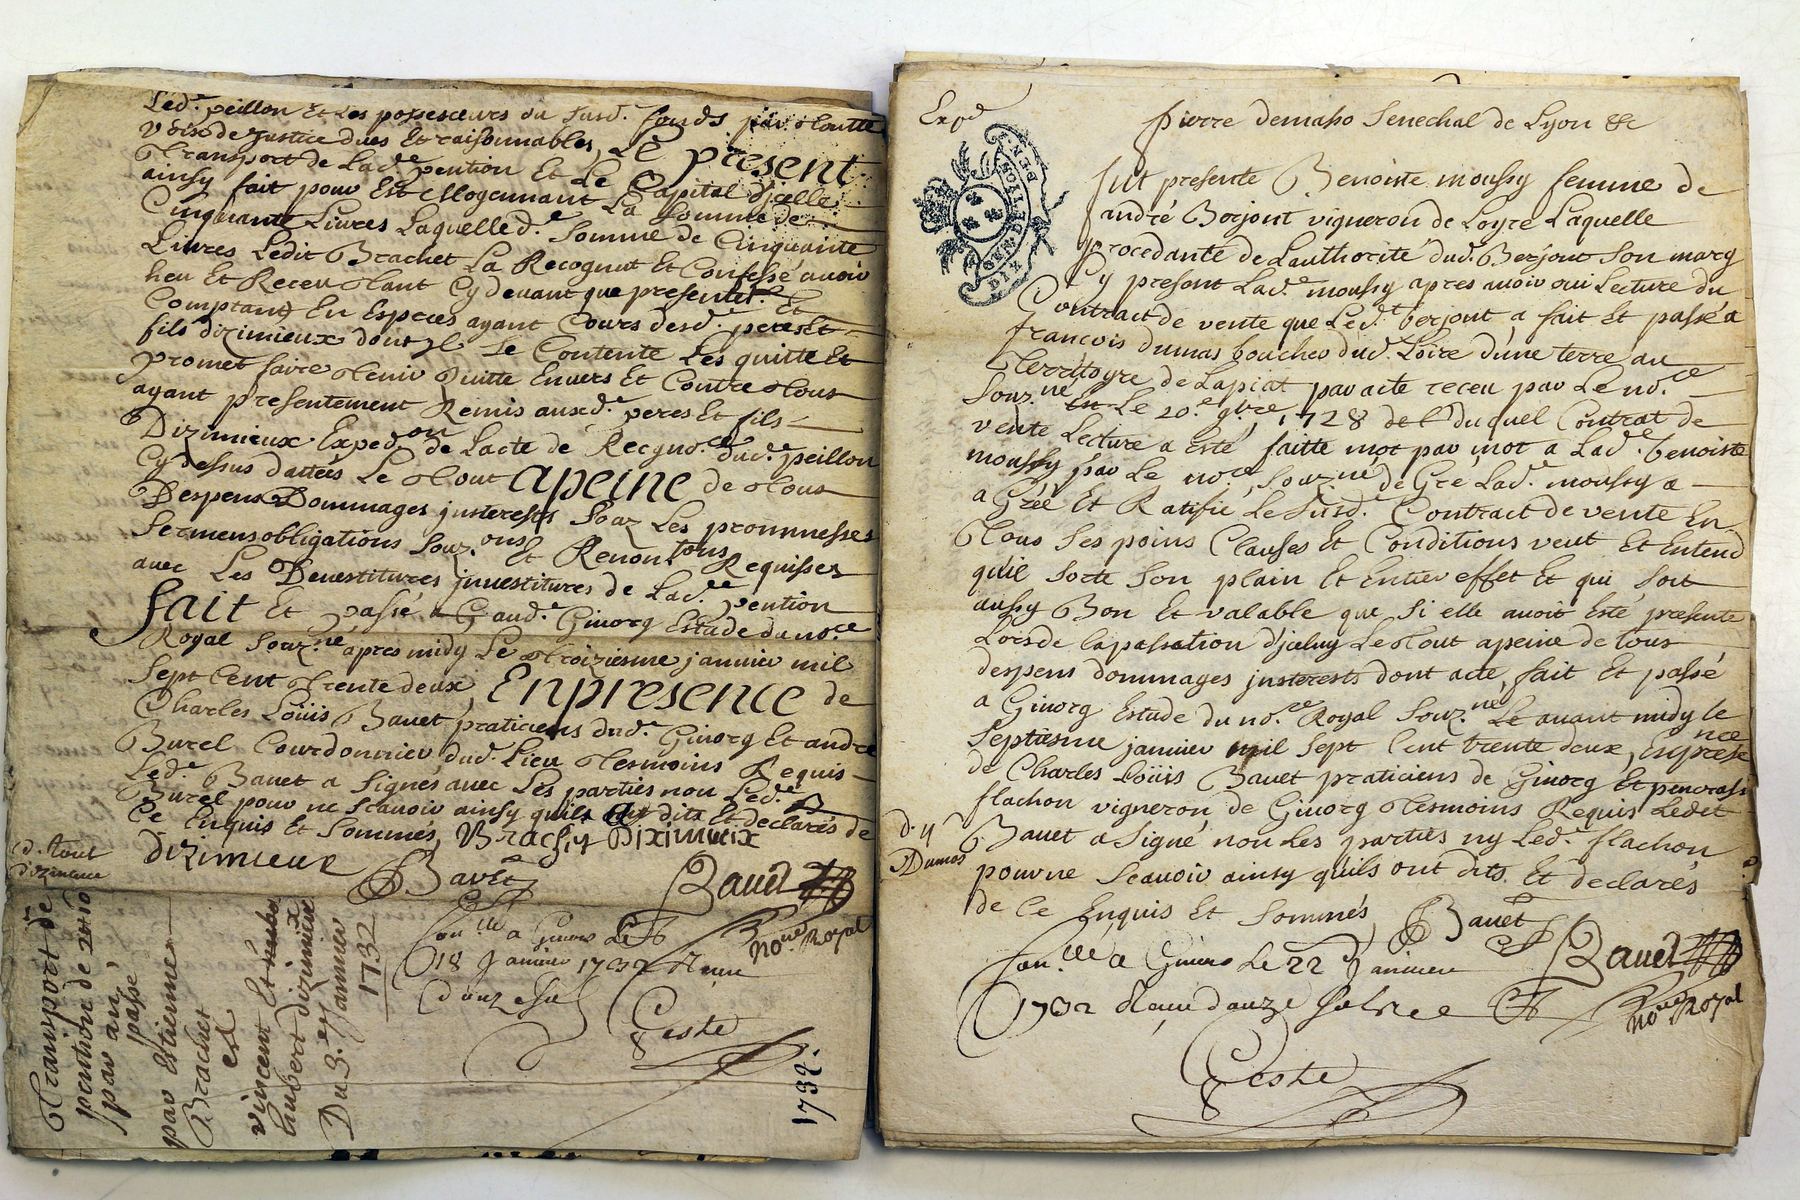 Led.t peillon Et Les possesseurs du susd. fonds par toutte
Voise de justice dues Et raisonnables, Le present
Transport de Lad.e pention Et Le Capital d'jcelle
ainsy fait pour Est Moyennant La somme de
Cinquante Livres Laquelle d.e somme de Cinquante
Livres Ledit Brachet La Recognut Et Confessé avoir
heu Et Receu tant Cy devant que presentet. Et
Comptant En Especes ayant Cours desd. peres Et
fils dizimieux dont jl se Contente Les quitte Et
promet faire tenir Quitte Envers Et Contre tous
ayant presentement Remis auxd. peres Et fils
Dizimieux Exped.on de Lacte de Recgno.ce dud. peillon
Cy dessus dattées Le tout apeine de tous
Despens Dommages jnterests sour Les prommesses
sermens obligations souz.ons Et Renon.tons Requisses
avec Les Devestitures jnvestitures de Lad.e pention
fait Et passé a Grand. Givorg Estude du no.re
Royal Souz.né apres midy Le troiziesme janvier mil
sept Cent trente deux, Enpresence de
Charles Loüis Bavet praticiens dud. Givorg Et andre
Burel Courdonnier dud. Lieu tesmoins Requis
Led. Bavet a signés avec Les parties non Led.
Burel pour ne scauoir ainsy quils ont dits Et declarés de
Ce Enquis Et sommés, Brachet Diximieix
dizimieux
Bavet
Bauet
No.re Royal
d. tout
dizimieux
Con.lle a Givors Le
18 Janvier 1732 Recu
douze sol
Geste
Transport de
pention de 2ll10
par an
passé
par Estienne
Brachet
a
vincent Et
hubert dizimieux
Du 3.e Janvier
1732
1732.
Exp.é
pierre demasso Senechal de Lyon &c
DIX DEN LA FEUILLE
GEN LYON
fut presente Benoiste moussy femme de
andré Berjont vigneron de Loyre Laquelle
procedante de Lauthorité dud. Berjont son mary
Cy present Lad.e moussy apres auoir oui Lecture du
Contract de vente que Led.t berjont a fait Et passé a
francois dumas boucher dud. Loire d'une terre au
Territoyre de Lapiat par acte receu par Le no.re
Souz.né Le 20.e 9bre 1728 del duquel Contrat de
vente Lecture a Esté faitte mot par mot a Lad.e benoiste
moussy par Le no.re Souz.né de Gré Lad.e moussy a
a Gréé Et Ratifié Le susd. Contract de vente En
Tous ses poins Clauses Et Conditions veut Et Entend
quil sorte son plain Et Entier effet Et qui soit
aussy Bon Et valable que si elle auoit Esté presente
Lorsde lapassation d'jceluy Le tout apeine de tous
despens dommages jnterests dont acte, fait Et passé
a Givorg Estude du no.re Royal Souz.né Le auant midy le
Septiesme janvier mil sept Cent trente deux, Enprese nce
de Charles Loüis Bavet praticiens de Givorg Et pencrasse
flachon vigneron de Givorg tesmoins Requis Ledit
Bavet a signé non Les parties ny Led. flachon
pour ne scauoir ainsy quils ont dits Et declarés
de Ce Enquis Et sommés
Bavet
Bauet
No.re Royal
d. y
Dumas
Con.lle a Givors Le 22 Janvier
1732 Recu douze sols
Geste